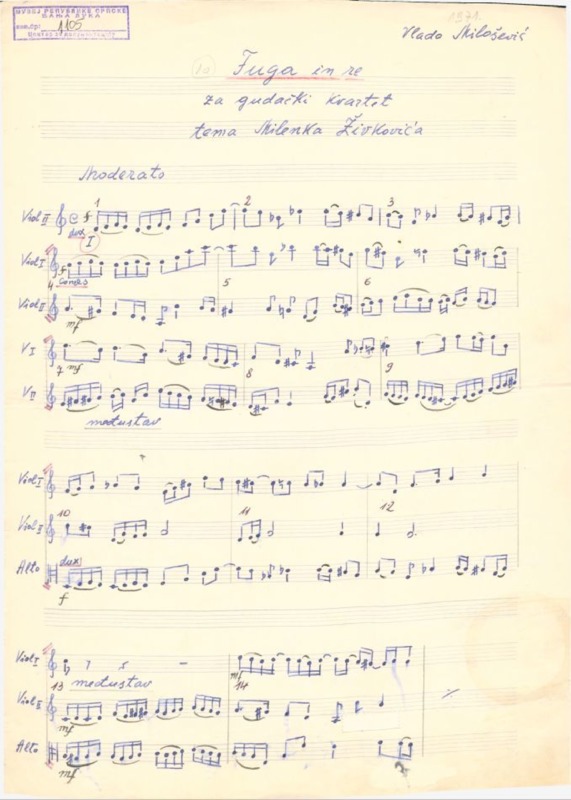 МУЗЕЈ РЕПУБЛИКЕ СРПСКЕ
БАЊА ЛУКА
1105
1971.
Vlado Milošević
Fuga in re
za gudački kvartet
tema Milenka Živkovića
Moderato
Viol II f 1 2 3
dux I
Viol I f
4 comes 5 6
Viol II mf
V I
7 mf 8 9
V II
međustav
Viol I
10 11 12
Viol II
Alto dux
f
Viol I mf
13 međustav 14
Viol II mf
Alto mf